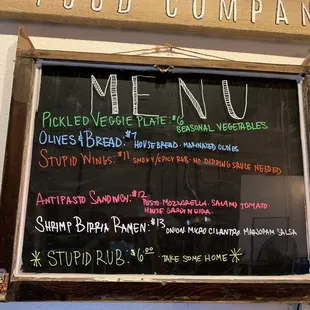 FOOD COMPAN
MENU
PICKLED VEGGIE PLATE: $6
SEASONAL VEGETABLES
OLIVES & BREAD: $7 HOUSE BREAD · MARINATED OLIVES
STUPID WINGS: $11 SMOKY/SPICY RUB · NO DIPPING SAUCE NEEDED
ANTIPASTO SANDWICH: $12 PESTO · MOZZARELLA · SALAMI · TOMATO ·
HOUSE
SHRIMP BIRRIA RAMEN: $13 ONION · MICRO CILANTRO SALSA
* STUPID RUB: $6.00 TAKE SOME HOME *